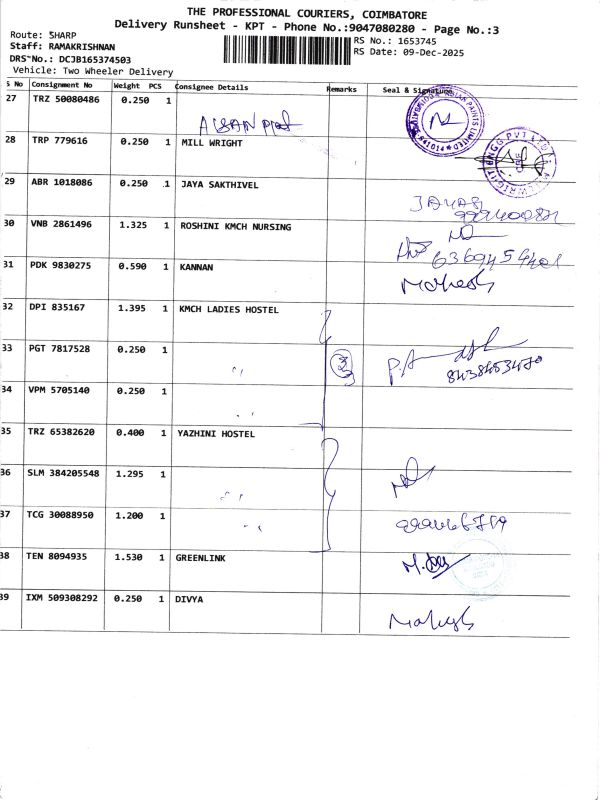 THE PROFESSIONAL COURIERS, COIMBATORE
Delivery Runsheet - KPT - Phone No.:9047080280 - Page No.:3
Route: SHARP
Staff: RAMAKRISHNAN
DRS No.: DCJB165374503
Vehicle: Two Wheeler Delivery
RS No.: 1653745
RS Date: 09-Dec-2025
S No Consignment No Weight PCS Consignee Details Remarks Seal & Signature
27 TRZ 50080486 0.250 1
28 TRP 779616 0.250 1 MILL WRIGHT
29 ABR 1018086 0.250 1 JAYA SAKTHIVEL
30 VNB 2861496 1.325 1 ROSHINI KMCH NURSING
6369454401
31 PDK 9830275 0.590 1 KANNAN
Mahesh
32 DPI 835167 1.395 1 KMCH LADIES HOSTEL
33 PGT 7817528 0.250 1 ,, 3
P.A
34 VPM 5705140 0.250 1 ,,
35 TRZ 65382620 0.400 1 YAZHINI HOSTEL
36 SLM 384205548 1.295 1 ,,
37 TCG 30088950 1.200 1 ,,
38 TEN 8094935 1.530 1 GREENLINK
39 IXM 509308292 0.250 1 DIVYA